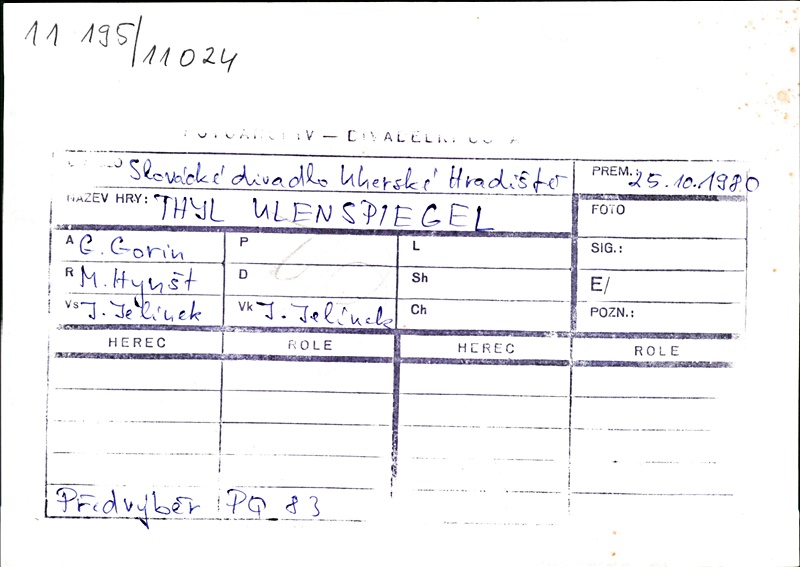 11 195/11024
Slovácké divadlo Uherské Hradiště PREM.: 25.10.1980
NÁZEV HRY: THYL ULENSPIEGEL FOTO
A G. Gorin P L SIG.:
R M. Hynšt D Sh E/
Vs J. Jelínek Vk J. Jelínek Ch POZN.:
HEREC ROLE HEREC ROLE
Předvýběr PQ 83